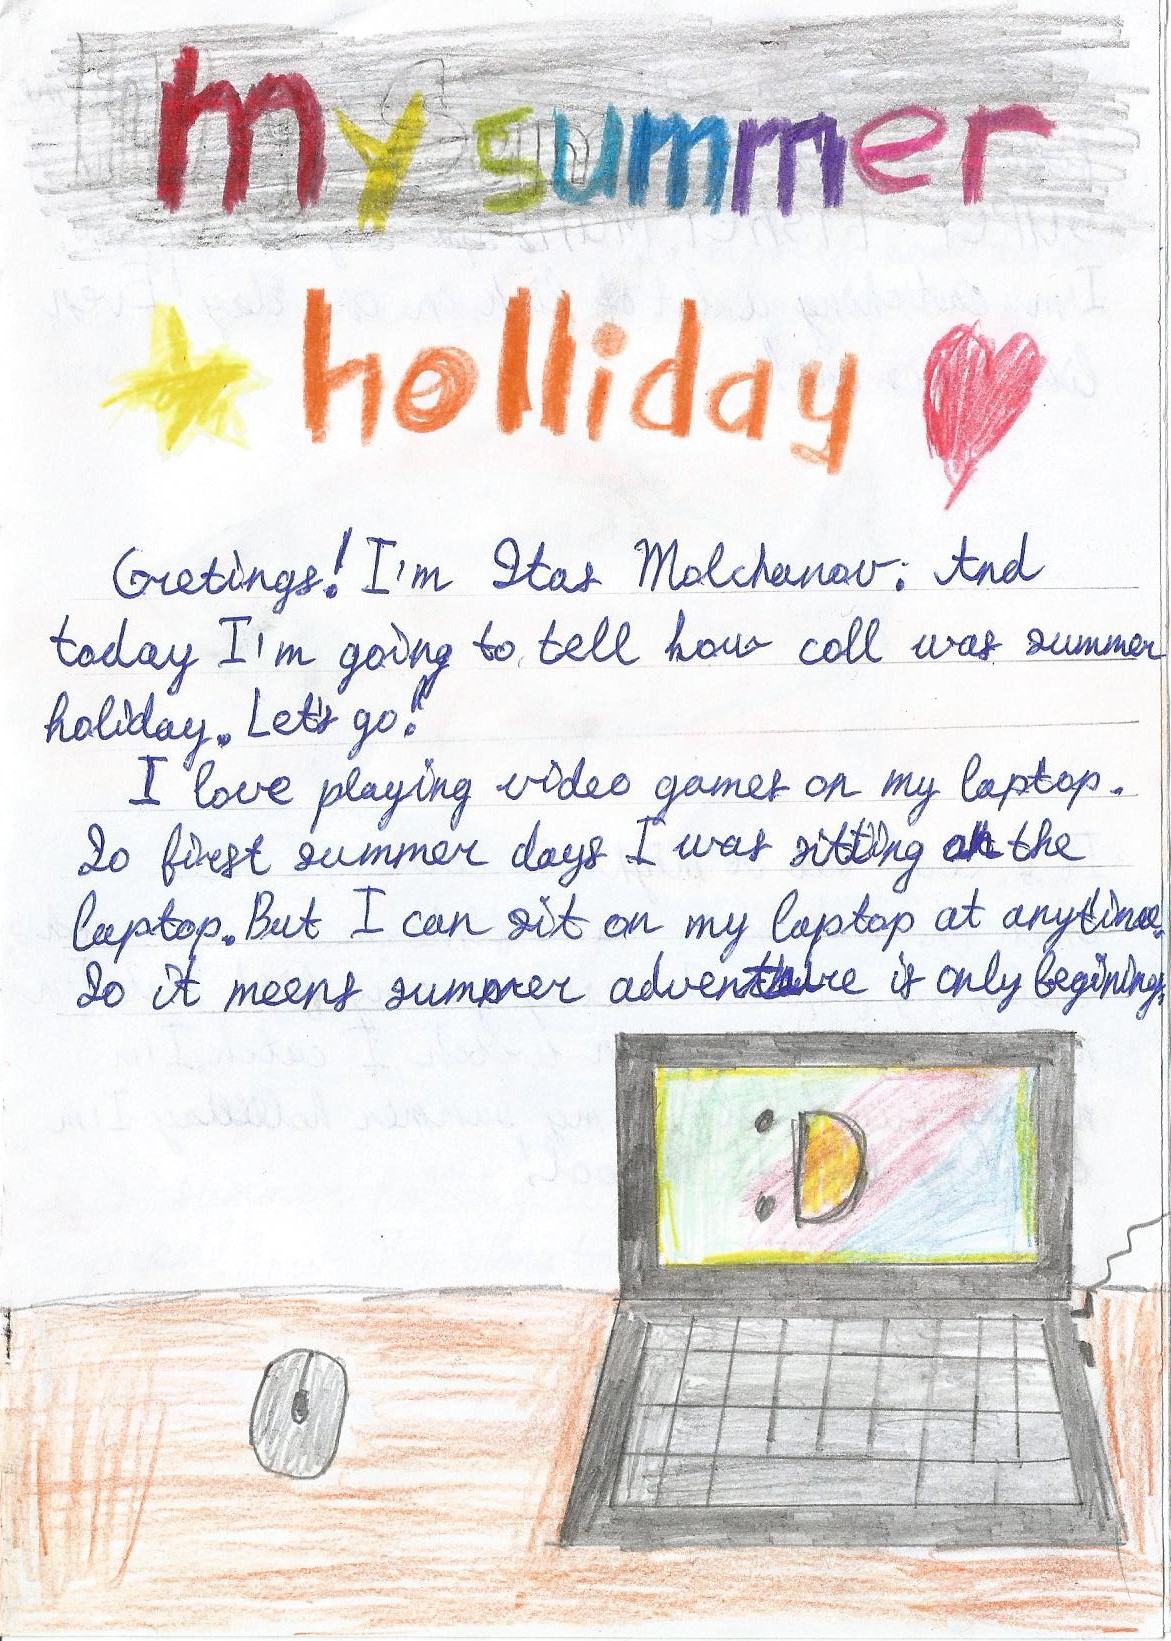 my summer
holliday
Gretings! I'm Stas Molchanov. And
today I'm going to tell how coll was summer
holiday. Let's go!
I love playing video games on my laptop.
So first summer days I was sitting on the
laptop. But I can sit on my laptop at anytime.
So it meens summer adventure is only begining.
:D